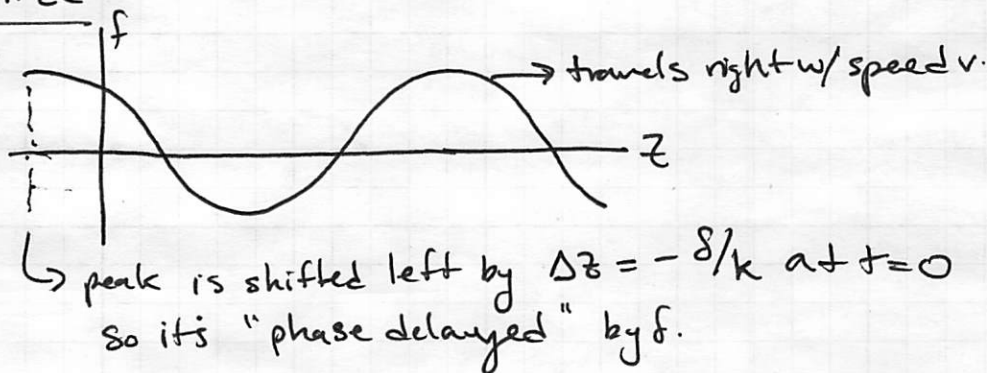 f
→ travels right w/ speed v.
z
↳ peak is shifted left by Δz = - δ/k at t=0
so it's "phase delayed" by δ.